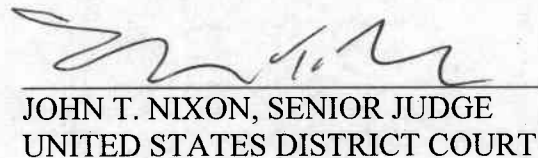 JOHN T. NIXON, SENIOR JUDGE
UNITED STATES DISTRICT COURT